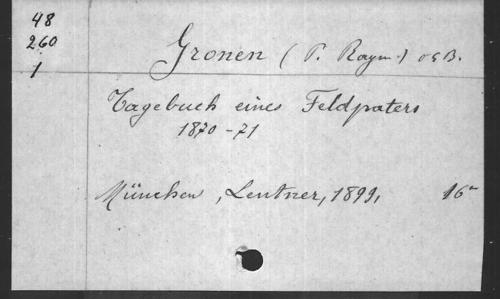 48
260
1
Gronen (P. Raym.) OSB.
Tagebuch eines Feldpaters
1870-71
München, Lentner, 1899,
16°